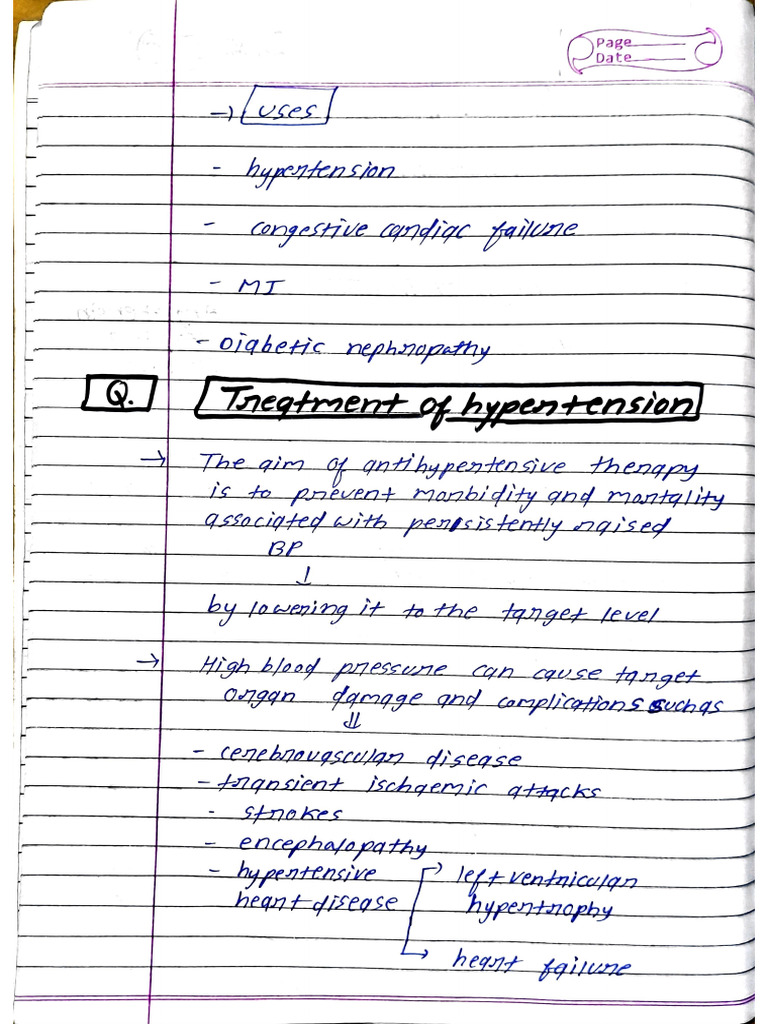 Page
Date
→ uses
- hypertension
- congestive cardiac failure
- MI
- Diabetic nephropathy
Q. Treatment of hypertension
→ The aim of antihypertensive therapy
is to prevent morbidity and mortality
associated with persistently raised
BP
↓
by lowering it to the target level
→ High blood pressure can cause target
organ damage and complications such as
⇓
- cerebrovascular disease
- transient ischaemic attacks
- strokes
- encephalopathy
- hypertensive → left ventricular
heart disease hypertrophy
→ heart failure